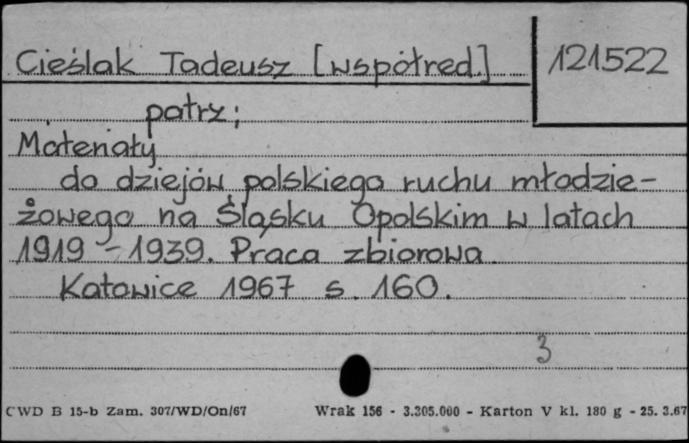 Cieślak Tadeusz [współred.]
121522
patrz:
Materiały
do dziejów polskiego ruchu młodzie-
żowego na Śląsku Opolskim w latach
1919 - 1939. Praca zbiorowa.
Katowice 1967 s. 160.
3
CWD B 15-b Zam. 307/WD/On/67 Wrak 156 - 3.305.000 - Karton V kl. 180 g - 25. 3.67